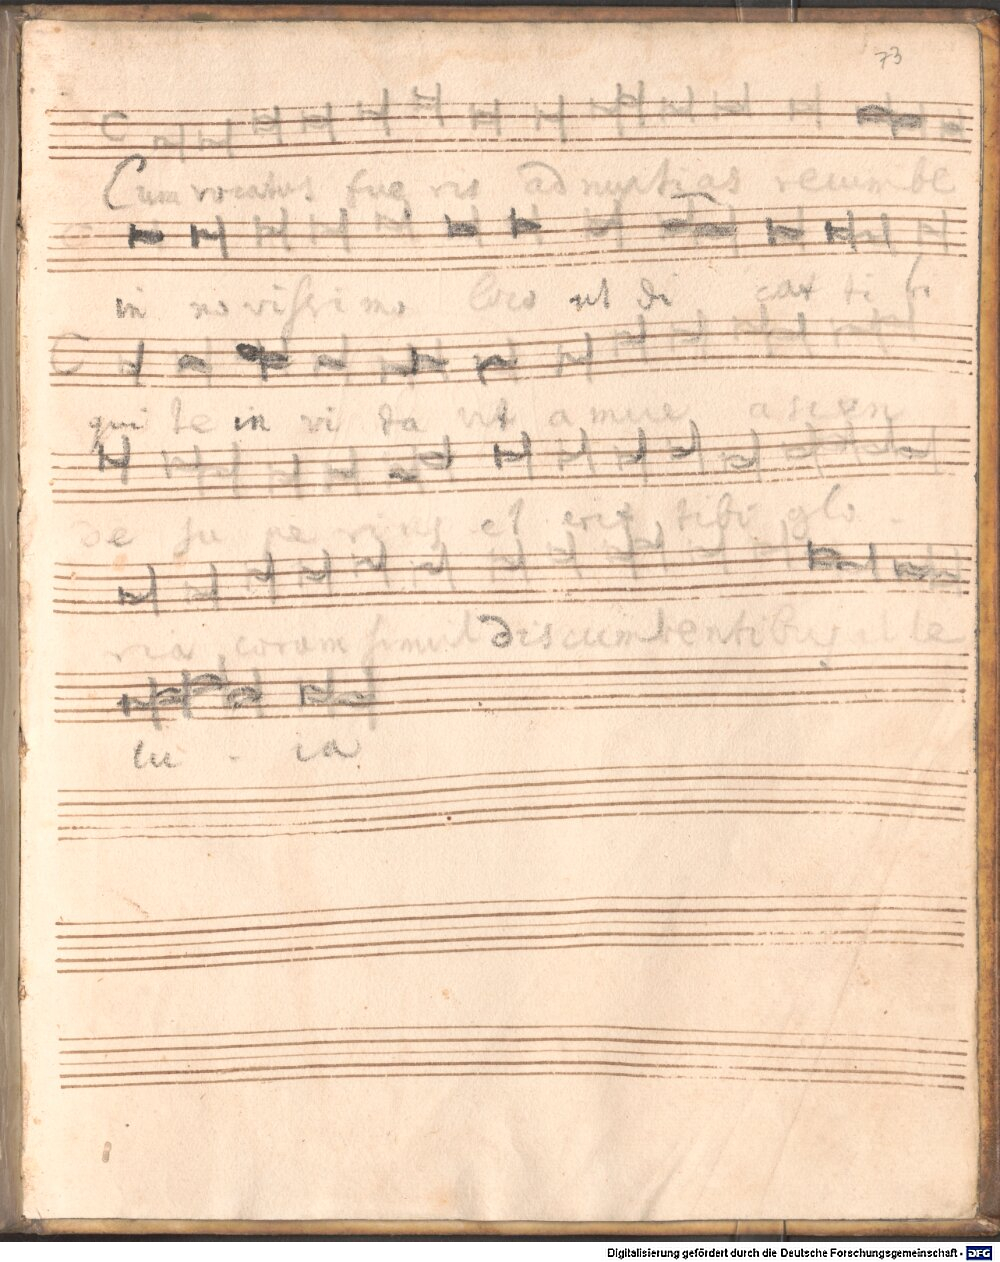 73
Cum vocatus fue ris ad nuptias recumbe
in novissimo loco ut di cat ti bi
qui te in vi ta vit amice ascen
de su pe rius et erit tibi glo -
ria coram simul discumbentibus alle
lu - ia
Digitalisierung gefördert durch die Deutsche Forschungsgemeinschaft - DFG